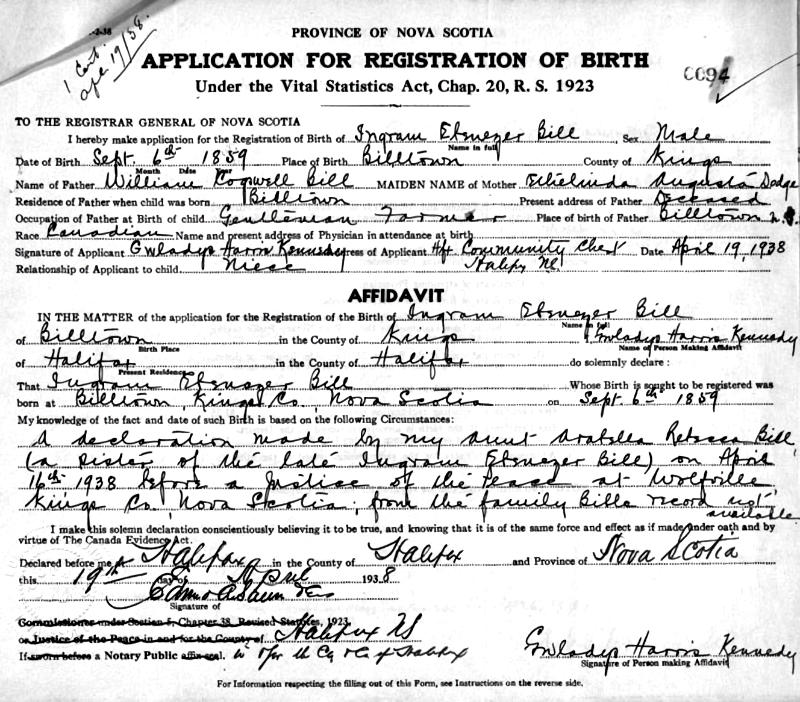 -2-38
1 Cert.
Apl 19/38.
PROVINCE OF NOVA SCOTIA
APPLICATION FOR REGISTRATION OF BIRTH
0094
Under the Vital Statistics Act, Chap. 20, R. S. 1923
TO THE REGISTRAR GENERAL OF NOVA SCOTIA
I hereby make application for the Registration of Birth of Ingram Ebenezer Bill, Sex Male
Name in full
Date of Birth Sept. 6th 1859 Place of Birth Billtown County of Kings
Month Date Year
Name of Father William Cogswell Bill MAIDEN NAME of Mother Ethelinda Augusta Dodge
Residence of Father when child was born Billtown Present address of Father Deceased
Occupation of Father at Birth of child Gentleman Farmer Place of birth of Father Billtown N.S.
Race Canadian Name and present address of Physician in attendance at birth
Signature of Applicant Gwladys Harris Kennedy ress of Applicant Hfx Community Chest Date April 19, 1938
Relationship of Applicant to child Niece Halifax NS
AFFIDAVIT
IN THE MATTER of the application for the Registration of the Birth of Ingram Ebenezer Bill
Name in full
of Billtown in the County of Kings I Gwladys Harris Kennedy
Birth Place Name of Person Making Affidavit
of Halifax in the County of Halifax do solemnly declare:
Present Residence
That Ingram Ebenezer Bill Whose Birth is sought to be registered was
born at Billtown, Kings Co., Nova Scotia on Sept. 6th 1859
My knowledge of the fact and date of such Birth is based on the following Circumstances:
A declaration made by my aunt Arabella Rebecca Bill
(a sister of the late Ingram Ebenezer Bill) on April
16th 1938 before a Justice of the Peace at Wolfville
Kings Co., Nova Scotia; from the family Bible record not
available
I make this solemn declaration conscientiously believing it to be true, and knowing that it is of the same force and effect as if made under oath and by
virtue of The Canada Evidence Act.
Declared before me at Halifax in the County of Halifax and Province of Nova Scotia
this 19th day of April 1938
Signature of
Commissioner under Section 5, Chapter 38, Revised Statutes, 1923,
or Justice of the Peace in and for the County of Halifax NS
If sworn before a Notary Public affix seal. Gwladys Harris Kennedy
Signature of Person making Affidavit
For Information respecting the filling out of this Form, see Instructions on the reverse side.